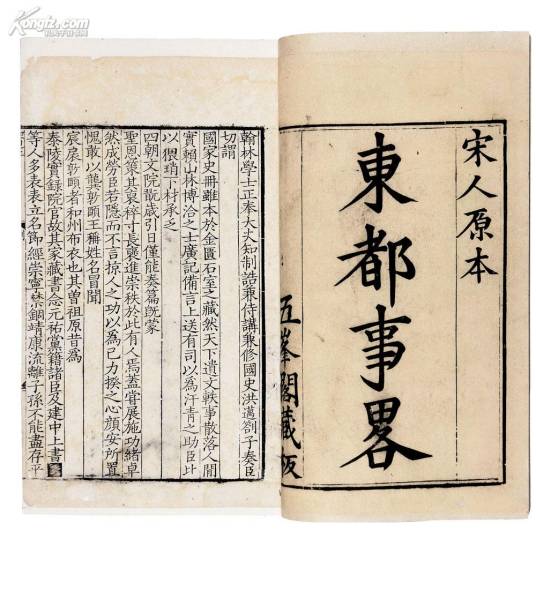 Kongfz.com
宋人原本
東都事畧
五峯閣藏板
翰林學士正奉大夫知制誥兼侍講兼修國史洪邁劄子奏臣
切謂
國家史冊雖本於金匱石室之藏然天下遺文軼事散落人間
實賴山林博洽之士廣記備言上送有司以為汗青之助臣比
以猥瑣下材承乏
四朝文院翫歲引日僅能奏篇旣蒙
聖恩第其裒稡寸長襃進崇秩於此有人焉蓋嘗展施功緒卓
然成勞臣若隱而不言掠人之功以為己力揆之心顏安所置
愧敢以龔敦頤王稱姓名冒聞
宸扆敦頤者和州布衣也其曾祖原昔為
泰陵實錄院官故其家藏書念元祐黨籍諸臣及建中上書
等人多表表立名節經崇寧禁錮靖康流離子孫不能盡存平